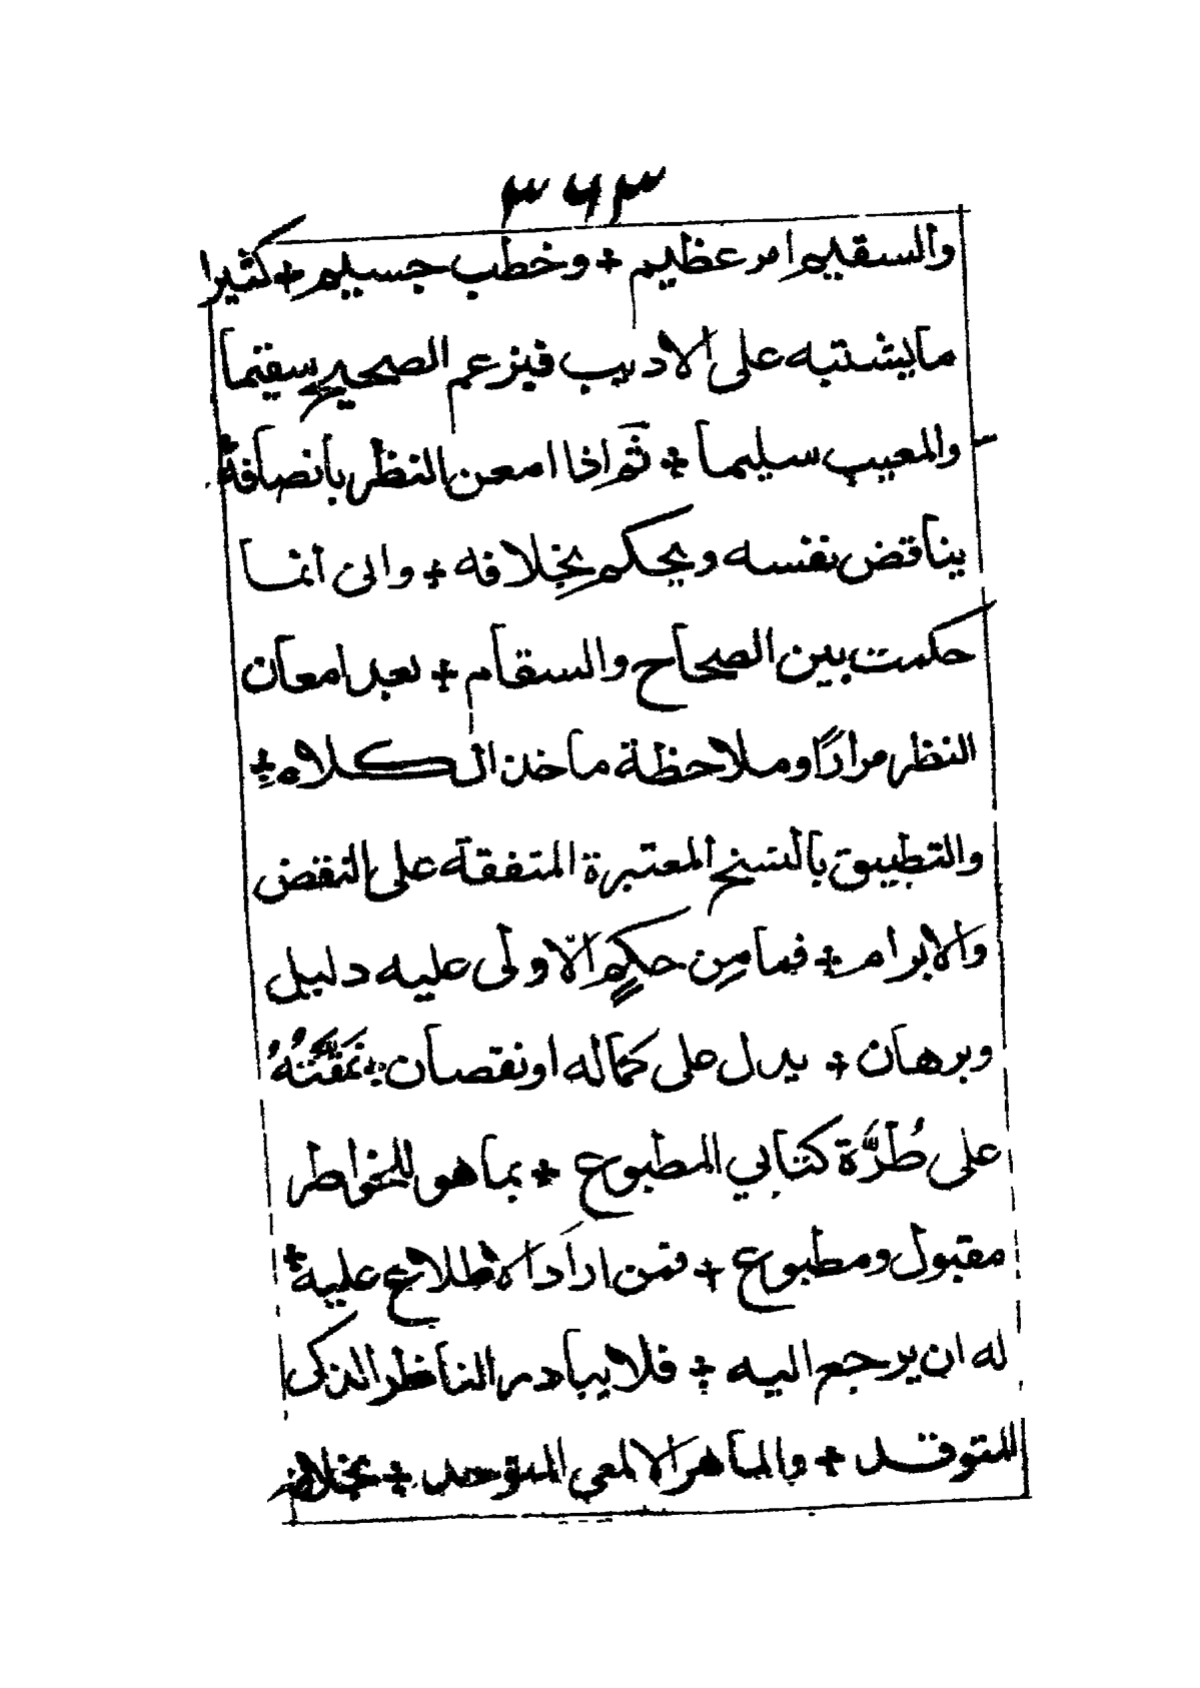 ٣٦٣
والسقيم امر عظيم + وخطب جسيم + كثيرا
ما يشتبه على الاديب فيزعم الصحيح سقيما
والمعيب سليما + ثم اذا امعن النظر بانصافه +
يناقض نفسه ويحكم بخلافه + واني انما
حكمت بين الصحاح والسقام + بعد امعان
النظر مرارًا وملاحظة ماخذ الكلام +
والتطبيق بالنسخ المعتبرة المتفقة على النقض
والابرام + فما مِن حكمٍ الّا ولى عليه دليل
وبرهان + يدل على كماله او نقصان + نَمَّقْتُهُ
على طُرَّة كتابي المطبوع + بما هو للخواطر
مقبول ومطبوع + فمن اراد الاطلاع عليه +
له ان يرجع اليه + فلا يبادر الناظر الذكى
المتوقد + والماهر الالمعي المتوحد + بخلاف